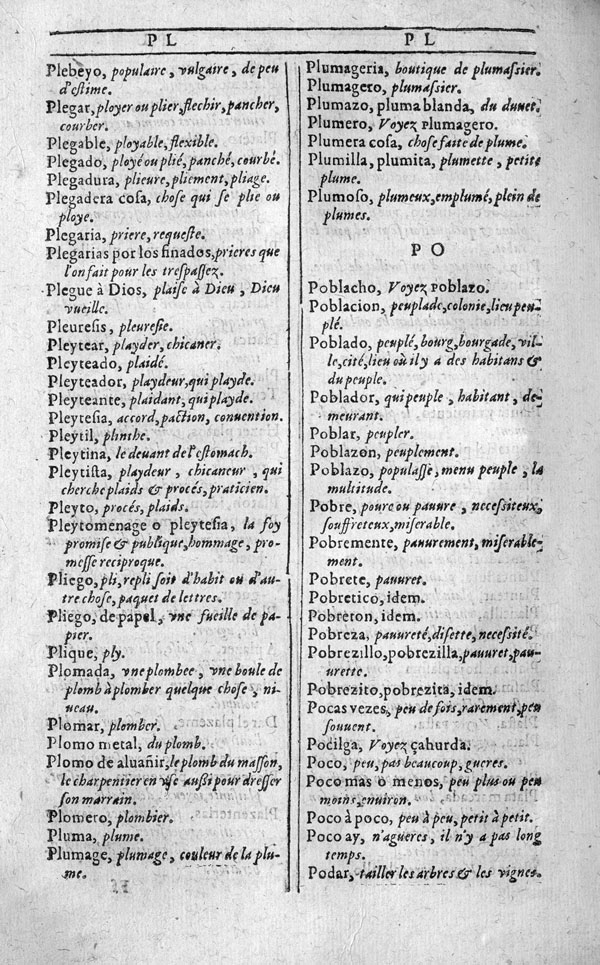 PL
PL
Plebeyo, populaire, vulgaire, de peu
d'eſtime.
Plegar, ployer ou plier, flechir, pancher,
courber.
Plegable, ployable, flexible.
Plegado, ployé ou plié, panché, courbé.
Plegadura, plieure, pliement, pliage.
Plegadera coſa, choſe qui ſe plie ou
ploye.
Plegaria, priere, requeſte.
Plegarias por los finados, prieres que
l'on fait pour les treſpaſſez.
Plegue à Dios, plaiſe à Dieu, Dieu
vueille.
Pleureſis, pleureſie.
Pleytear, playder, chicaner.
Pleyteado, plaidé.
Pleyteador, playdeur, qui playde.
Pleyteante, plaidant, qui playde.
Pleyteſia, accord, paction, conuention.
Pleytil, plinthe.
Pleytina, le deuant de l'eſtomach.
Pleytiſta, playdeur, chicaneur, qui
cherche plaids & procés, praticien.
Pleyto, procés, plaids.
Pleytomenage o pleyteſia, la foy
promiſe & publique, hommage, pro-
meſſe reciproque.
Pliego, pli, repli ſoit d'habit ou d'au-
tre choſe, paquet de lettres.
Pliego, de papel, vne fueille de pa-
pier.
Plique, ply.
Plomada, vne plombee, vne boule de
plomb à plomber quelque choſe, ni-
ueau.
Plomar, plomber.
Plomo metal, du plomb.
Plomo de aluañir, le plomb du maſſon,
le charpentier en vſe auſſi pour dreſſer
ſon marrain.
Plomero, plombier.
Pluma, plume.
Plumage, plumage, couleur de la plu-
me.
Plumageria, boutique de plumaſſier.
Plumagero, plumaſſier.
Plumazo, pluma blanda, du duuet.
Plumero, Voyez Plumagero.
Plumera coſa, choſe faite de plume.
Plumilla, plumita, plumette, petite
plume.
Plumoſo, plumeux, emplumé, plein de
plumes.
PO
Poblacho, Voyez Poblazo.
Poblacion, peuplade, colonie, lieu peu-
plé.
Poblado, peuplé, bourg, bourgade, vil-
le, cité, lieu où il y a des habitans &
du peuple.
Poblador, qui peuple, habitant, de-
meurant.
Poblar, peupler.
Poblazon, peuplement.
Poblazo, populaſſe, menu peuple, la
multitude.
Pobre, poure ou pauure, neceſſiteux,
ſouffreteux, miſerable.
Pobremente, pauurement, miſerable-
ment.
Pobrete, pauuret.
Pobretico, idem.
Pobreron, idem.
Pobreza, pauureté, diſette, neceſſité.
Pobrezillo, pobrezilla, pauuret, pau-
urette.
Pobrezito, pobrezita, idem.
Pocas vezes, peu de fois, rarement, peu
ſouuent.
Pocilga, Voyez çahurda.
Poco, peu, pas beaucoup, gueres.
Poco mas o menos, peu plus ou peu
moins, enuiron.
Poco à poco, peu à peu, petit à petit.
Poco ay, n'agueres, il n'y a pas long
temps.
Podar, tailler les arbres & les vignes.